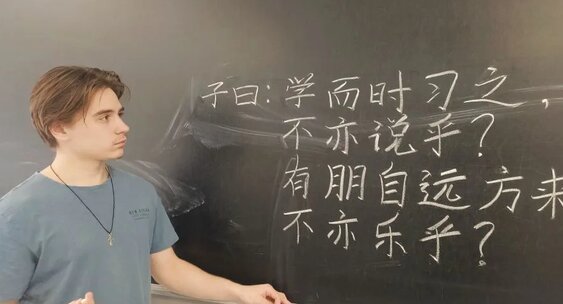 子曰：学而时习之，
不亦说乎？
有朋自远方来
不亦乐乎？